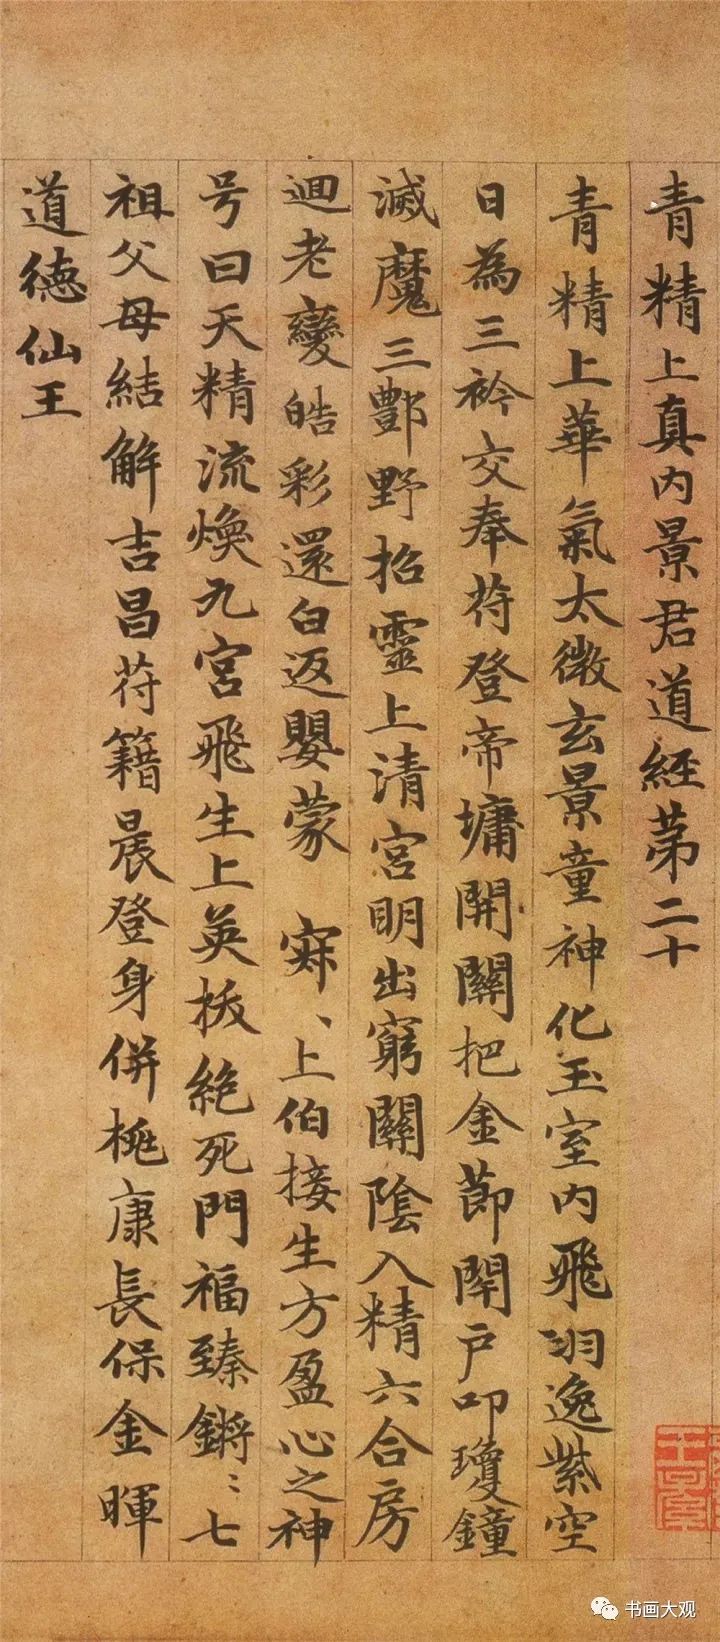 青精上真内景君道經苐二十
青精上華氣太微玄景童神化玉室内飛羽逸紫空
日為三衿交奉苻登帝墉開關把金莭開户叩瓊鐘
滅魔三酆野招靈上清宮明出窮關陰入精六合房
迴老變皓彩還白返嬰蒙 寂、上伯接生方盈心之神
号曰天精流煥九宮飛生上英拔絕死門福臻鏘〻七
祖父母結解吉昌苻籍晨登身併桃康長保金暉
道德仙王
书画大观